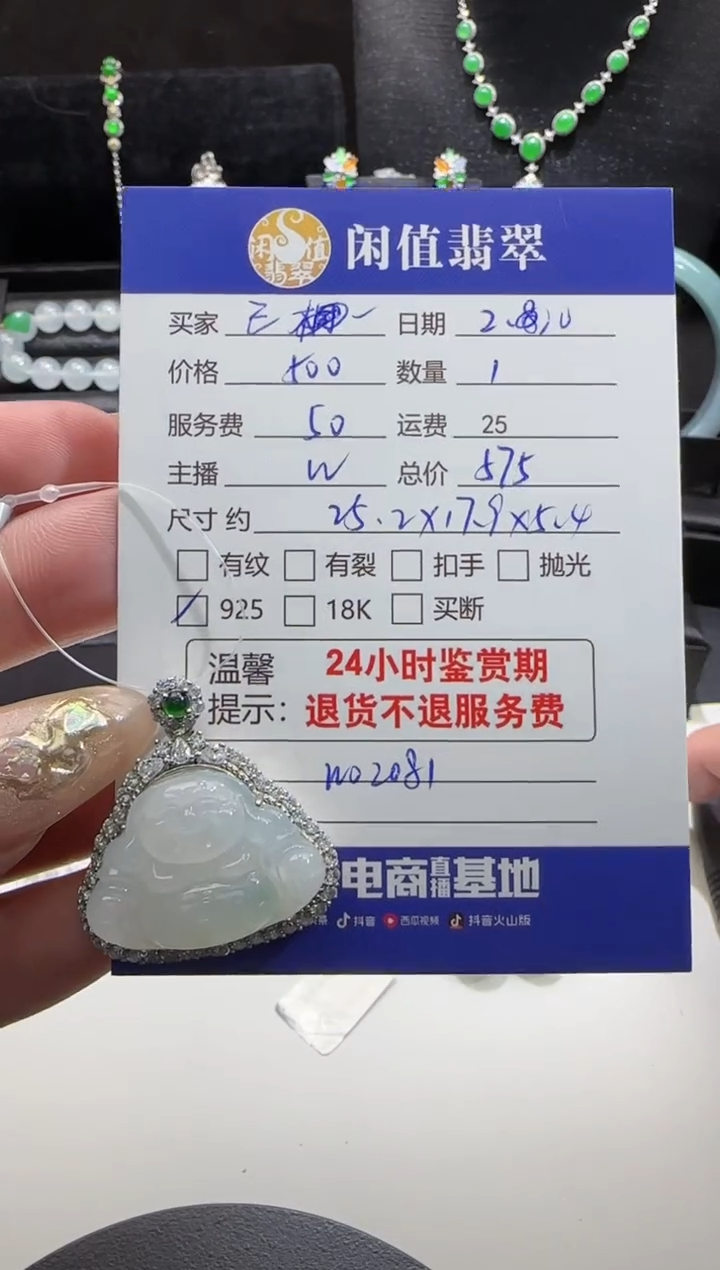 闲值翡翠
闲值翡翠
买家 日期
价格 500 数量 1
服务费 50 运费 25
主播 W 总价 575
尺寸 约 25.2X17.9X5.4
有纹 有裂 扣手 抛光
925 18K 买断
温馨 24小时鉴赏期
提示: 退货不退服务费
W02081
电商直播基地
抖音 西瓜视频 抖音火山版